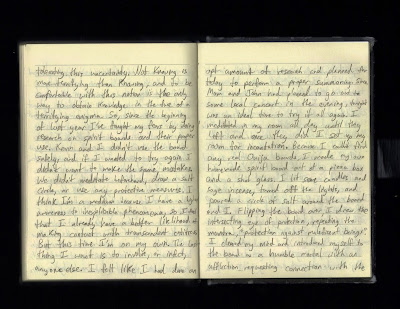 tolerating this uncertainty. Not Knowing is
more terrifying than Knowing, and to be
comfortable with this notion is the only
way to obtain Knowledge in the time of a
terrifying enigma. So, since the beginning
of last year I've fought my fears by doing
research on spirit boards and their proper
use. Kevin and I didn't use the board
safely and if I wanted to try again I
didn't want to make the same mistakes.
We didn't meditate beforehand, draw a salt
circle, or use any protective measures. I
think I'm a medium because I have a
awareness to inexplicable phenomenon, so I
that I already have a better likelihood of
making contact with transcendent entities.
But this time I'm on my own. The last
thing I want is to involve, or infect,
anyone else. I felt like I had done an
apt amount of research and planned for
today to perform a proper summoning. Since
Mom and John had planned to go out to
some local concert in the evening, tonight
was an ideal time to try it all again. I
meditated in my room all day until they
left and once they did I set up my
room for incantation. Because I couldn't find
any real Ouija boards, I made my own
homemade spirit board out of a pizza box
and a shot glass. I lit some candles and
sage incense, turned off the lights, and
poured a circle of salt around the board
and I. Flipping the board over, I drew two
intersecting rings of protection, repeating the
mantra, "protection against malevolent beings".
I cleared my mind and introduced myself to
the board as a humble mortal with an
affliction requesting connection with the